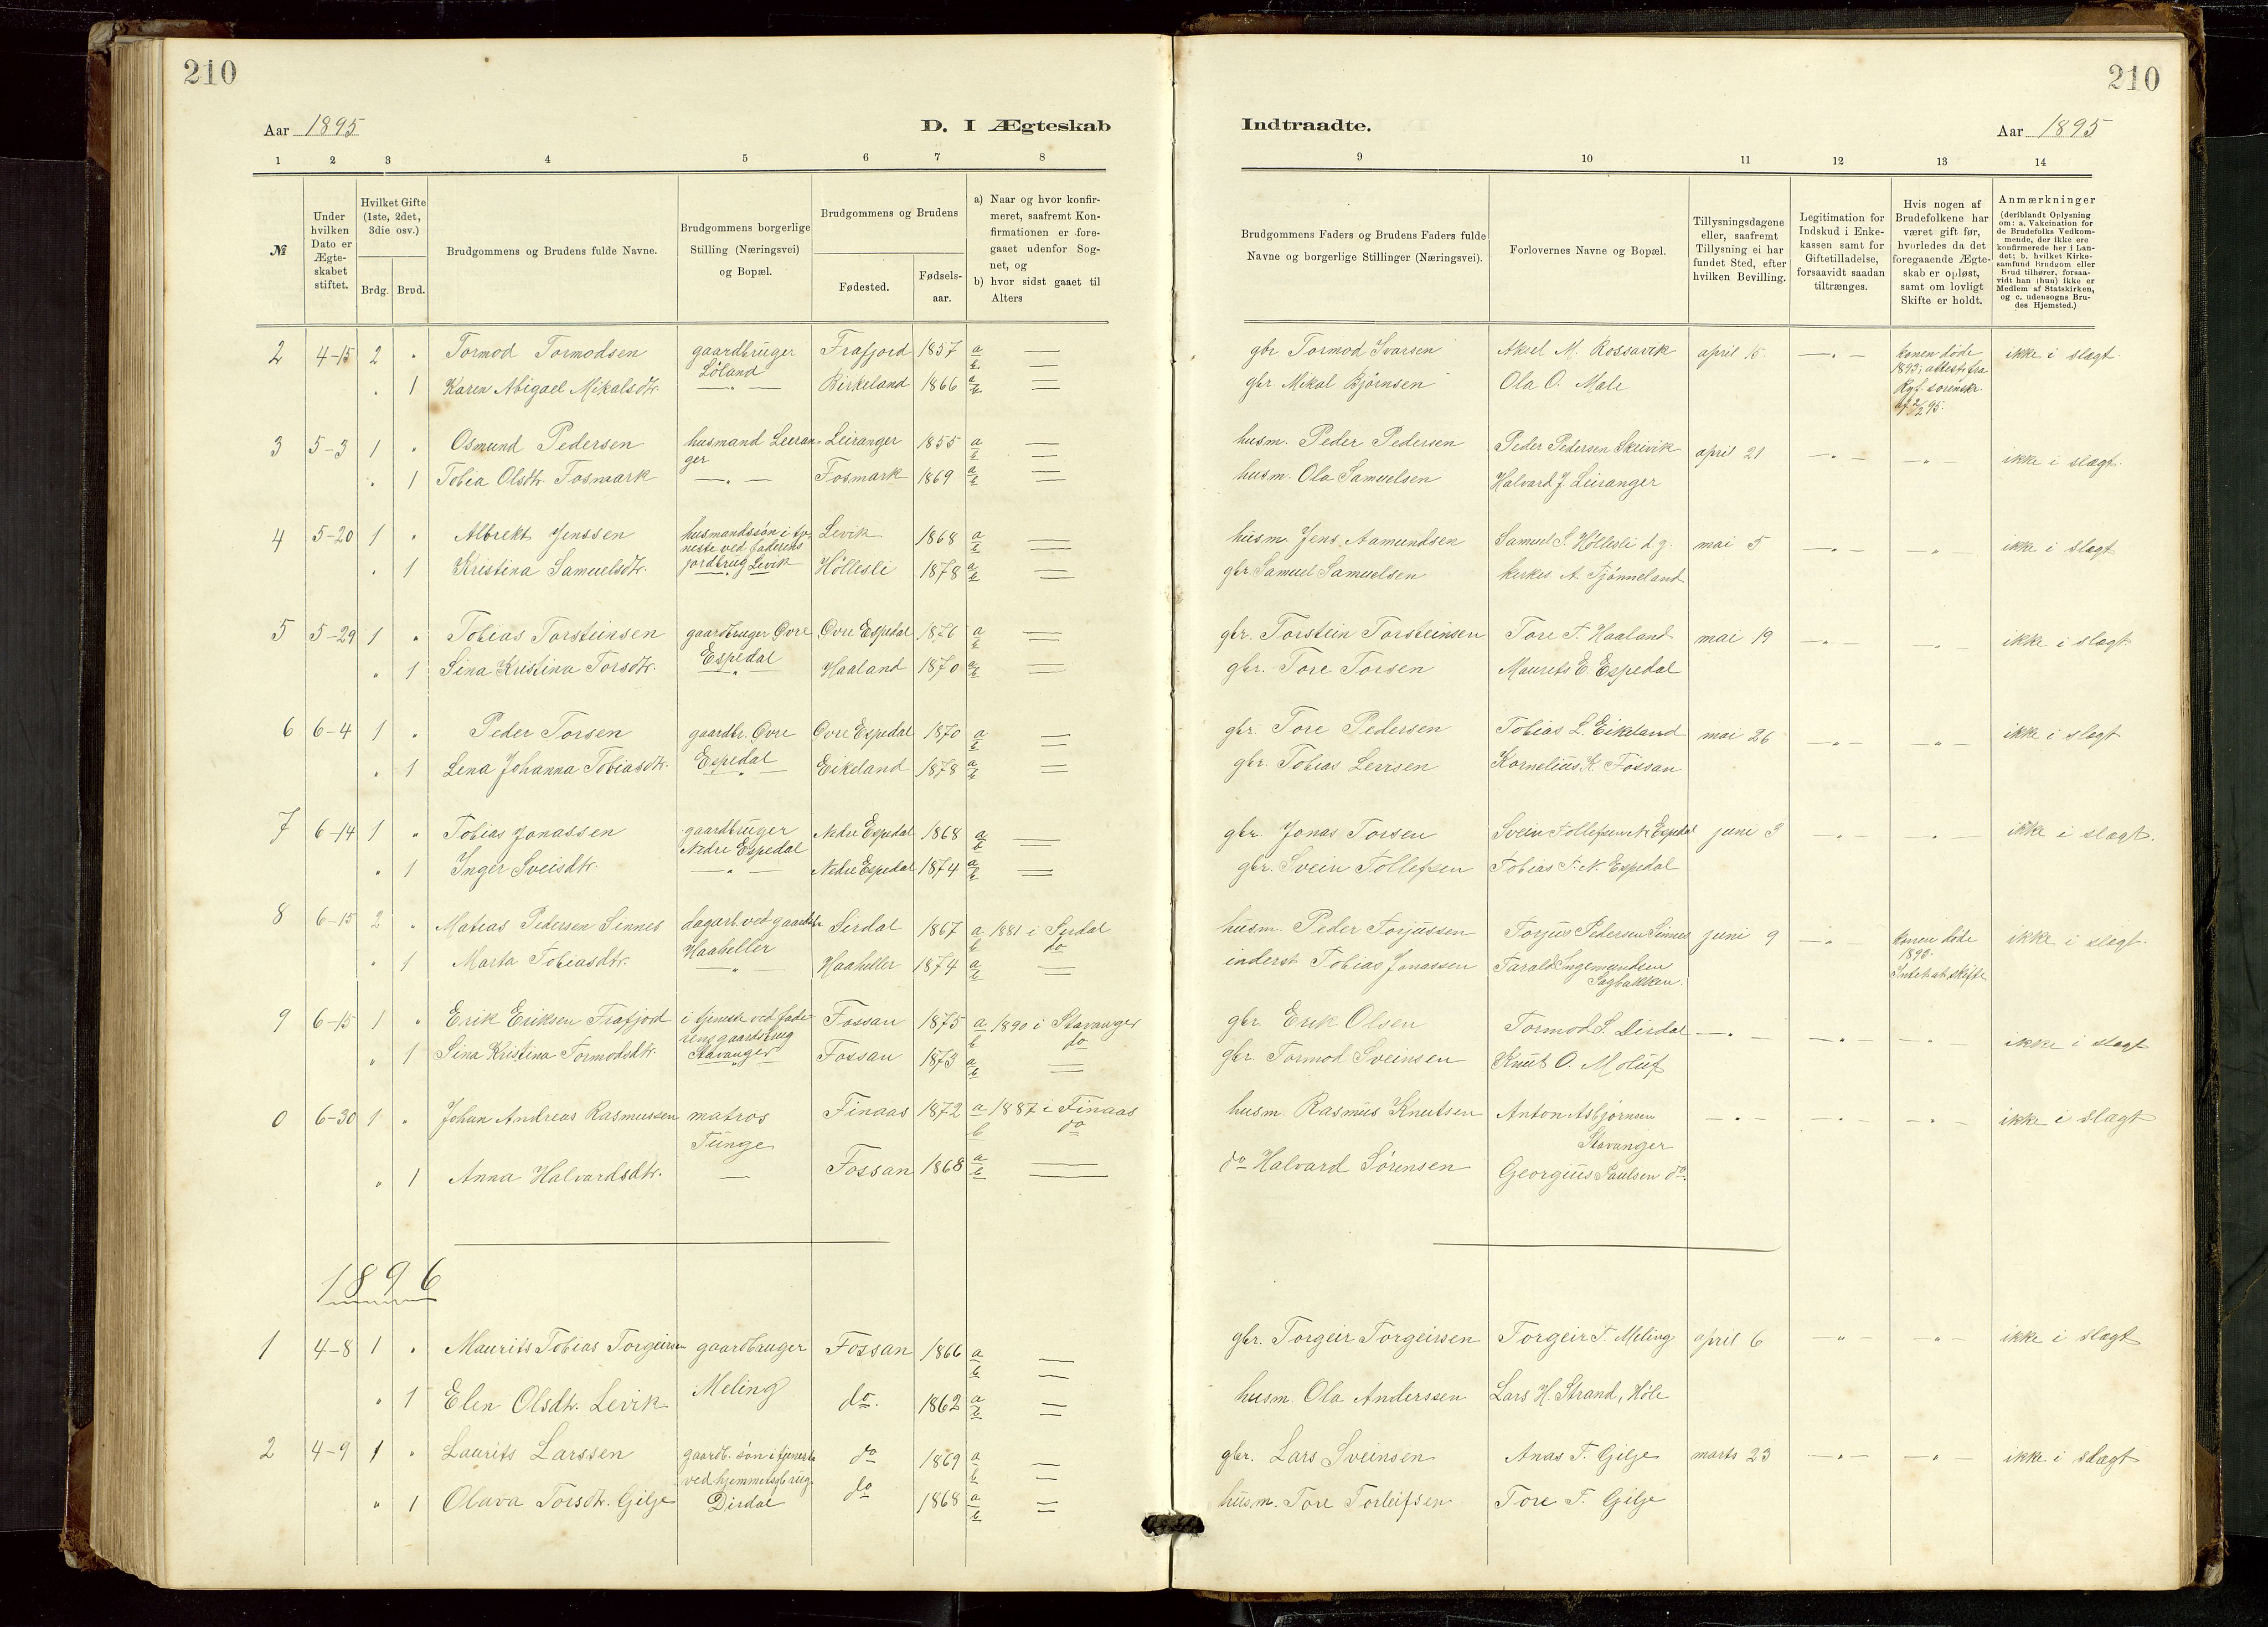 210
Aar 1895
D. I Ægteskab
1 2 3 4 5 6 7 8
№
Under hvilken Dato er Ægteskabet stiftet.
Hvilket Gifte (1ste, 2det, 3die osv.)
Brdg. Brud.
Brudgommens og Brudens fulde Navne.
Brudgommens borgerlige Stilling (Næringsvei) og Bopæl.
Brudgommens og Brudens
Fødested. Fødselsaar.
a) Naar og hvor konfirmeret, saafremt Konfirmationen er foregaaet udenfor Sognet, og
b) hvor sidst gaaet til Alters
2 4-15 2 " Tormod Tormodsen gaardbruger Løland Frafjord 1857 a b
" 1 Karen Abigael Mikalsdtr. —"— Birkeland 1866 a b
3 5-3 1 " Osmund Pedersen husmand Leiranger Leiranger 1855 a b
" 1 Tobia Olsdtr. Fosmark —"— Fosmark 1869 a b
4 5-20 1 " Albrekt Jenssen husmandssøn i tjeneste ved faderens jordbrug Levik Levik 1868 a b
" 1 Kristina Samuelsdtr. Høllesli 1878 a b
5 5-29 1 " Tobias Torsteinsen gaardbruger Øvre Espedal Øvre Espedal 1876 a b
" 1 Sina Kristina Torsdtr. —"— Haaland 1870 a b
6 6-4 1 " Peder Torsen gaardbr. Øvre Espedal Øvre Espedal 1870 a b
" 1 Lena Johanna Tobiasdtr. —"— Eikeland 1878 a b
7 6-14 1 " Tobias Jonassen gaardbruger Nedre Espedal Nedre Espedal 1868 a b
" 1 Inger Sveisdtr. —"— Nedre Espedal 1874 a b
8 6-15 2 " Matias Pedersen Sinnes dagarb. ved gaardsbr Haaheller Sirdal 1867 a 1881 i Sirdal b do
" 1 Marta Tobiasdtr. —"— Haaheller 1874 a b
9 6-15 1 " Erik Eriksen Frafjord i tjeneste ved faderens gaardsbrug Stavanger Fossan 1875 a 1890 i Stavanger b do
" 1 Sina Kristina Tormodsdtr. —"— Fossan 1873 a b
0 6-30 1 " Johan Andreas Rasmussen matros Tunge Finaas 1872 a 1887 i Finaas b do
" 1 Anna Halvardsdtr. — Fossan 1868 a b
1896
1 4-8 1 " Maurits Tobias Torgeirsen gaardbruger Meling Fossan 1866 a b
" 1 Elen Olsdtr. Levik do. 1862 a b
2 4-9 1 " Laurits Larssen gaardb. søn i tjeneste ved hjemmetsbrug Dirdal do 1869 a b
" 1 Olava Torsdtr. Gilje do 1868 a b
210
Indtraadte.
Aar 1895
9 10 11 12 13 14
Brudgommens Faders og Brudens Faders fulde Navne og borgerlige Stillinger (Næringsvei).
Forlovernes Navne og Bopæl.
Tillysningsdagene eller, saafremt Tillysning ei har fundet Sted, efter hvilken Bevilling.
Legitimation for Indskud i Enkekassen samt for Giftetilladelse, forsaavidt saadan tiltrænges.
Hvis nogen af Brudefolkene har været gift før, hvorledes da det foregaaende Ægteskab er opløst, samt om lovligt Skifte er holdt.
Anmærkninger (deriblandt Oplysning om: a. Vakcination for de Brudefolks Vedkommende, der ikke ere konfirmerede her i Landet; b. hvilket Kirkesamfund Brudgom eller Brud tilhører, forsaavidt han (hun) ikke er Medlem af Statskirken, og c. udensogns Brudes Hjemsted.)
gbr Tormod Svarsen Aksel M. Rossavik april 15 —"— konen døde 1893; attest fra Ryf. sorenskr. af 2/2 95. ikke i slægt.
gbr. Mikal Bjørnsen Ola O. Male
husm. Peder Pedersen Peder Pedersen Skeivik april 21 —"— —"— ikke i slægt.
husm. Ola Samuelsen Halvard J. Leiranger
husm. Jens Aamundsen Samuel S. Høllesli d.y. mai 5 —"— —"— ikke i slægt
gbr. Samuel Samuelsen kirkes. A. Tjønneland
gbr. Torstein Torsteinsen Tore T. Haaland mai 19 —"— —"— ikke i slægt.
gbr. Tore Torsen Maurets E. Espedal
gbr. Tore Pedersen Tobias L. Eikeland mai 26 —"— —"— ikke i slægt
gbr. Tobias Levisen Kornelius K. Fossan
gbr. Jonas Torsen Svein Tollefsen N. Espedal juni 3 —"— —"— ikke i slægt.
gbr. Svein Tollefsen Tobias T. N. Espedal
husm. Peder Torjussen Torjus Pedersen Sinnes juni 9 —"— konen døde 1893. Intet at skifte ikke i slægt.
inderst Tobias Jonassen Tarald Ingemundsen Sagbakken.
gbr. Erik Olsen Tormod S. Dirdal —"— —"— —"— ikke i slægt
gbr. Tormod Sveinsen Knut O. Moluf
husm. Rasmus Knutsen Anton Asbjørnsen Stavanger —"— —"— —"— ikke i slægt
do Halvard Sørensen Georgius Paulsen do.
gbr. Torgeir Torgeirsen Torgeir T. Meling april 6 —"— —"— ikke i slægt
husm. Ola Anderssen Lars H. Strand, Høle
gbr. Lars Sveinsen Anas T. Gilje marts 23 —"— —"— ikke i slægt
husm. Tore Torleifsen Tore T. Gilje